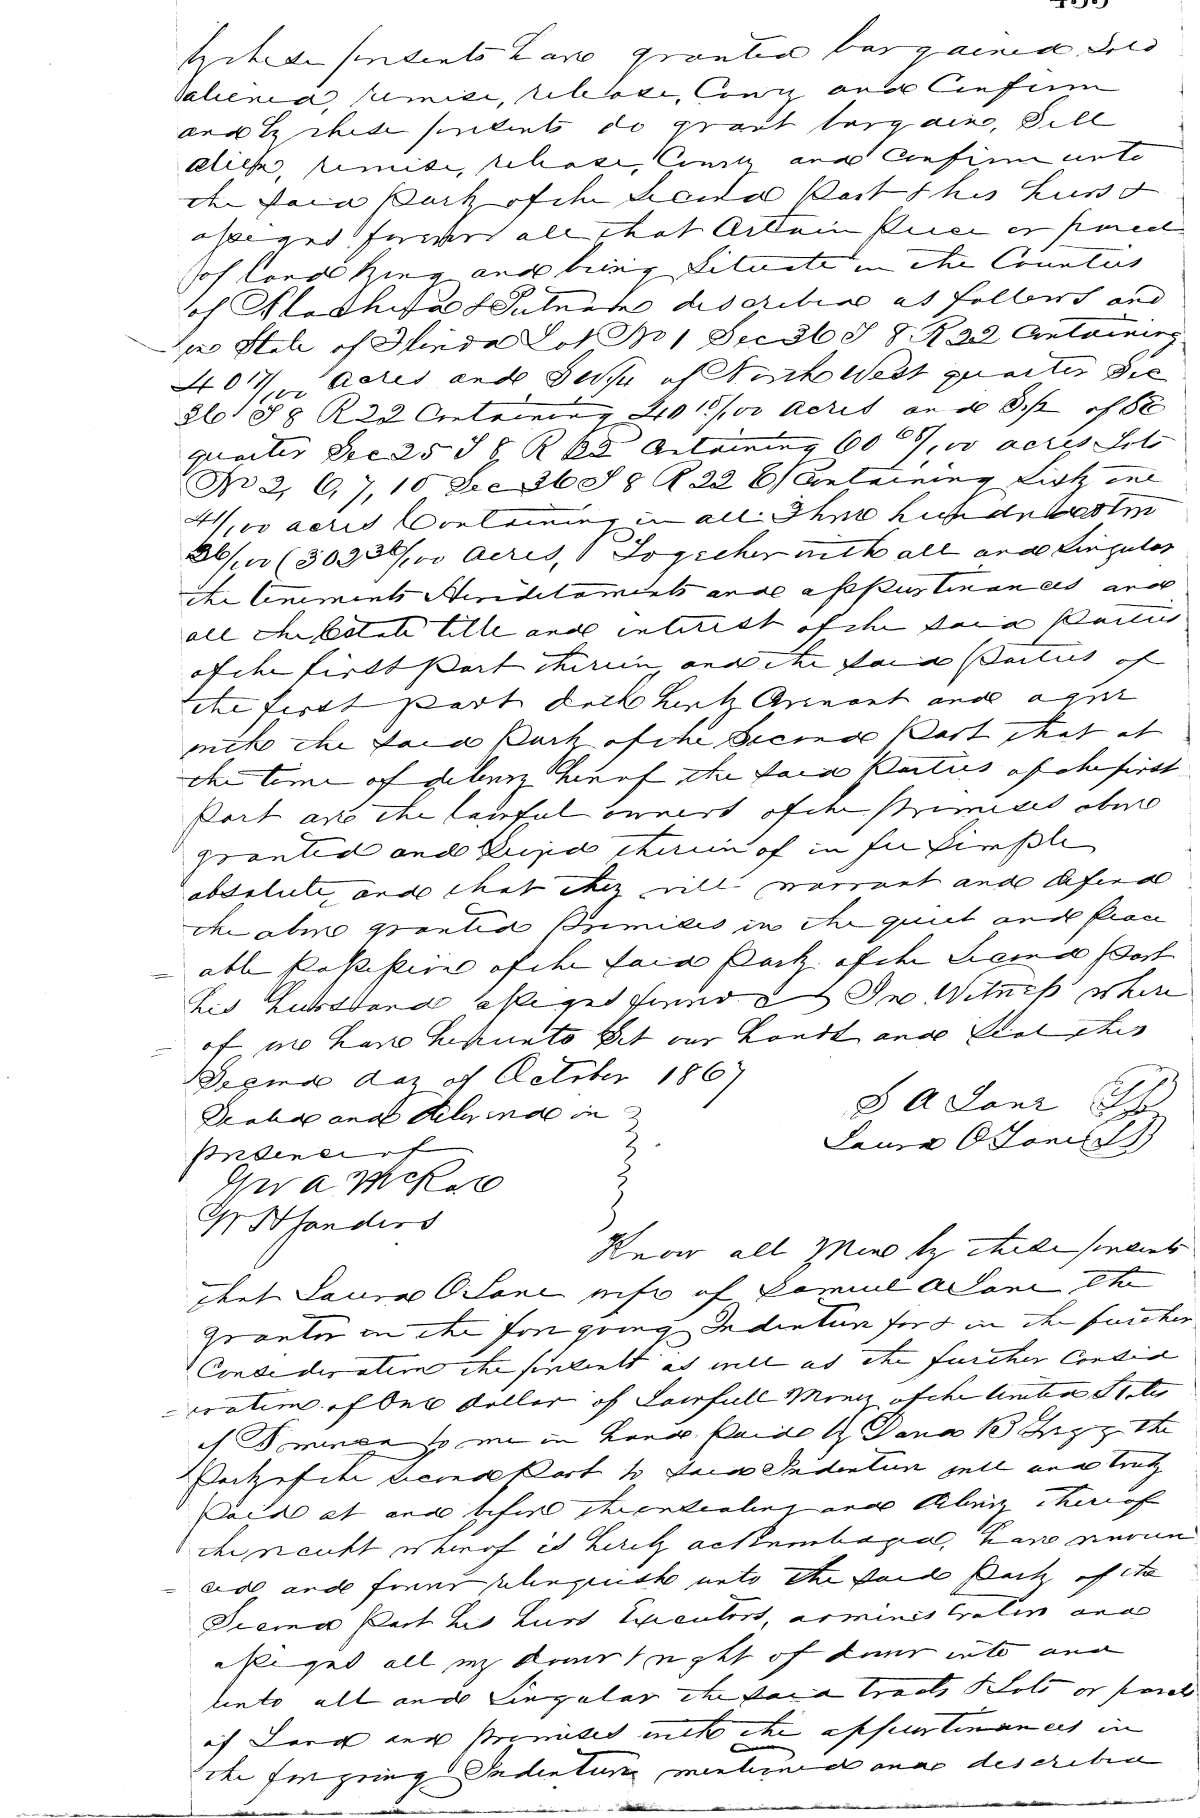 by these presents have granted bargained Sold
aliened, remise, release, Convy and Confirm
and by these presents do grant bargain, Sell
alien, remise, release, Convey and Confirm unto
the said Party of the Second Part & his heirs &
assigns forever all that Certain Piece or parcel
of land lying and being Situate in the Counties
of Alachua & Putnam described as follows and
in State of Florida Lot No 1 Sec 36 T 8 R 22 Containing
40 /100 acres and of North West quarter Sec
36 T 8 R 22 Containing 40 /100 acres and of SE
quarter Sec 25 T 8 R Containing 60 /100 acres Lots
No 2, 6, 7, 10 Sec 36 T 8 R 22 E Containing Sixty one
41/100 acres Containing in all Three hundred
36/100 (302 36/100 Acres, Together with all and Singular
the tenements Hereditaments and appurtinances and
all the Estate title and interest of the said Parties
of the first Part therein, and the said Parties of
the first part doth herby Covenant and agree
with the said Party of the Second Part that at
the time of delivery hereof the said Parties of the first
Part are the lawful owners of the Premises above
granted and Seized therein of in fee Simple
absolute, and that they will warrant and defend
the above granted Premises in the quiet and Peace
able Possession of the said Party of the Second Part
his heirs and assigns forever In Witness where
of we have hereunto Set our hands and Seal this
Second day of October 1867
Sealed and delivered in
presence of
S A Lane
Laura O Lane
Geo A McRae
W H Sanders
Know all Men by these presents
that Laura O Lane wife of Samuel A Lane the
grantor in the foregoing Indenture for & in the further
Consideration the presents as well as the further Consid
eration of One dollar of Lawfull Money of the United States
of America to me in hand Paid by Dana B the
Party of the Second Part to said Indenture well and truly
Paid at and before the ensealing and delivery thereof
the receipt whereof is hereby acknowledged, have renoun
ced and forever relinquish unto the said Party of the
Second Part his heirs Executors, administrators and
assigns all my dower & right of dower into and
unto all and Singular the said tracts & Lots or parcels
of Land and Premises with the appurtinances in
the foregoing Indenture mentioned and described